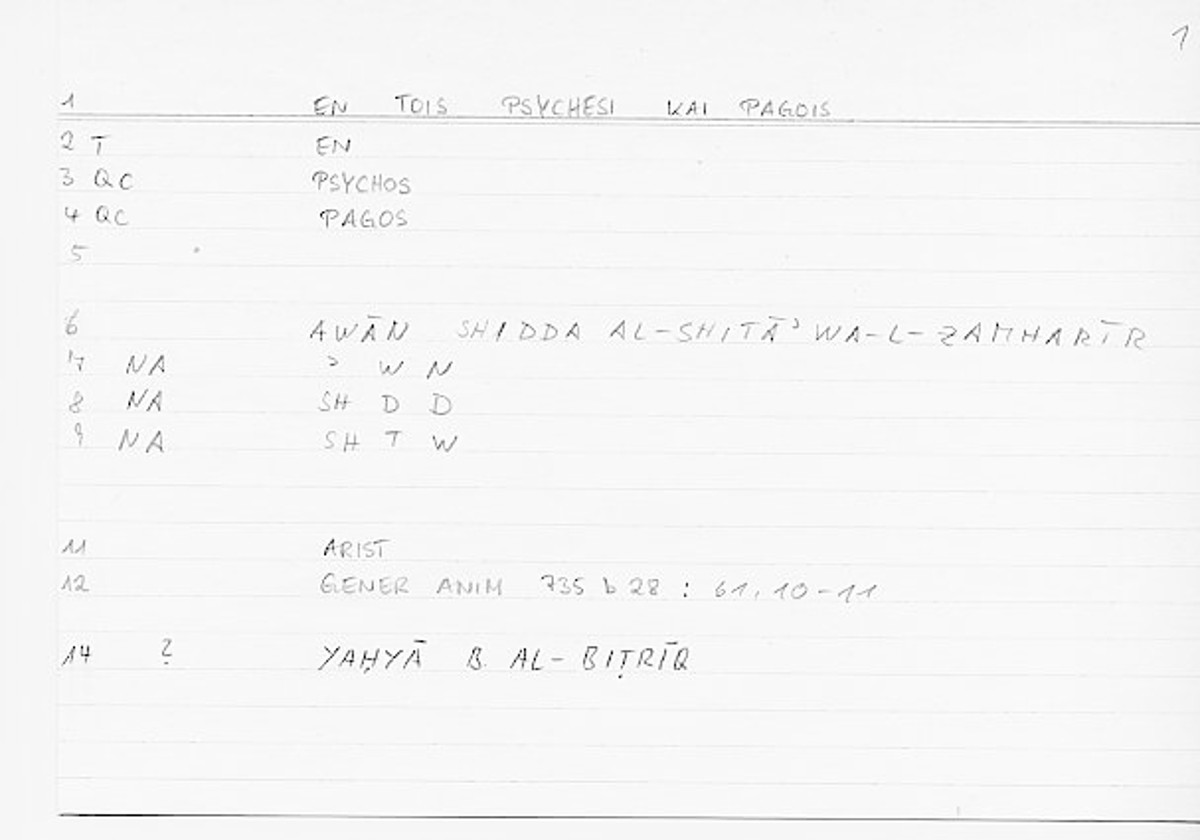 1
1 EN TOIS PSYCHESI KAI PAGOIS
2 T EN
3 QC PSYCHOS
4 QC PAGOS
5
6 AWĀN SHIDDA AL-SHITĀʾ WA-L-ZAMHARĪR
7 NA ʾ W N
8 NA SH D D
9 NA SH T W
11 ARIST
12 GENER ANIM 735 b 28 : 61, 10-11
14 ? YAḤYĀ B. AL-BIṬRĪQ